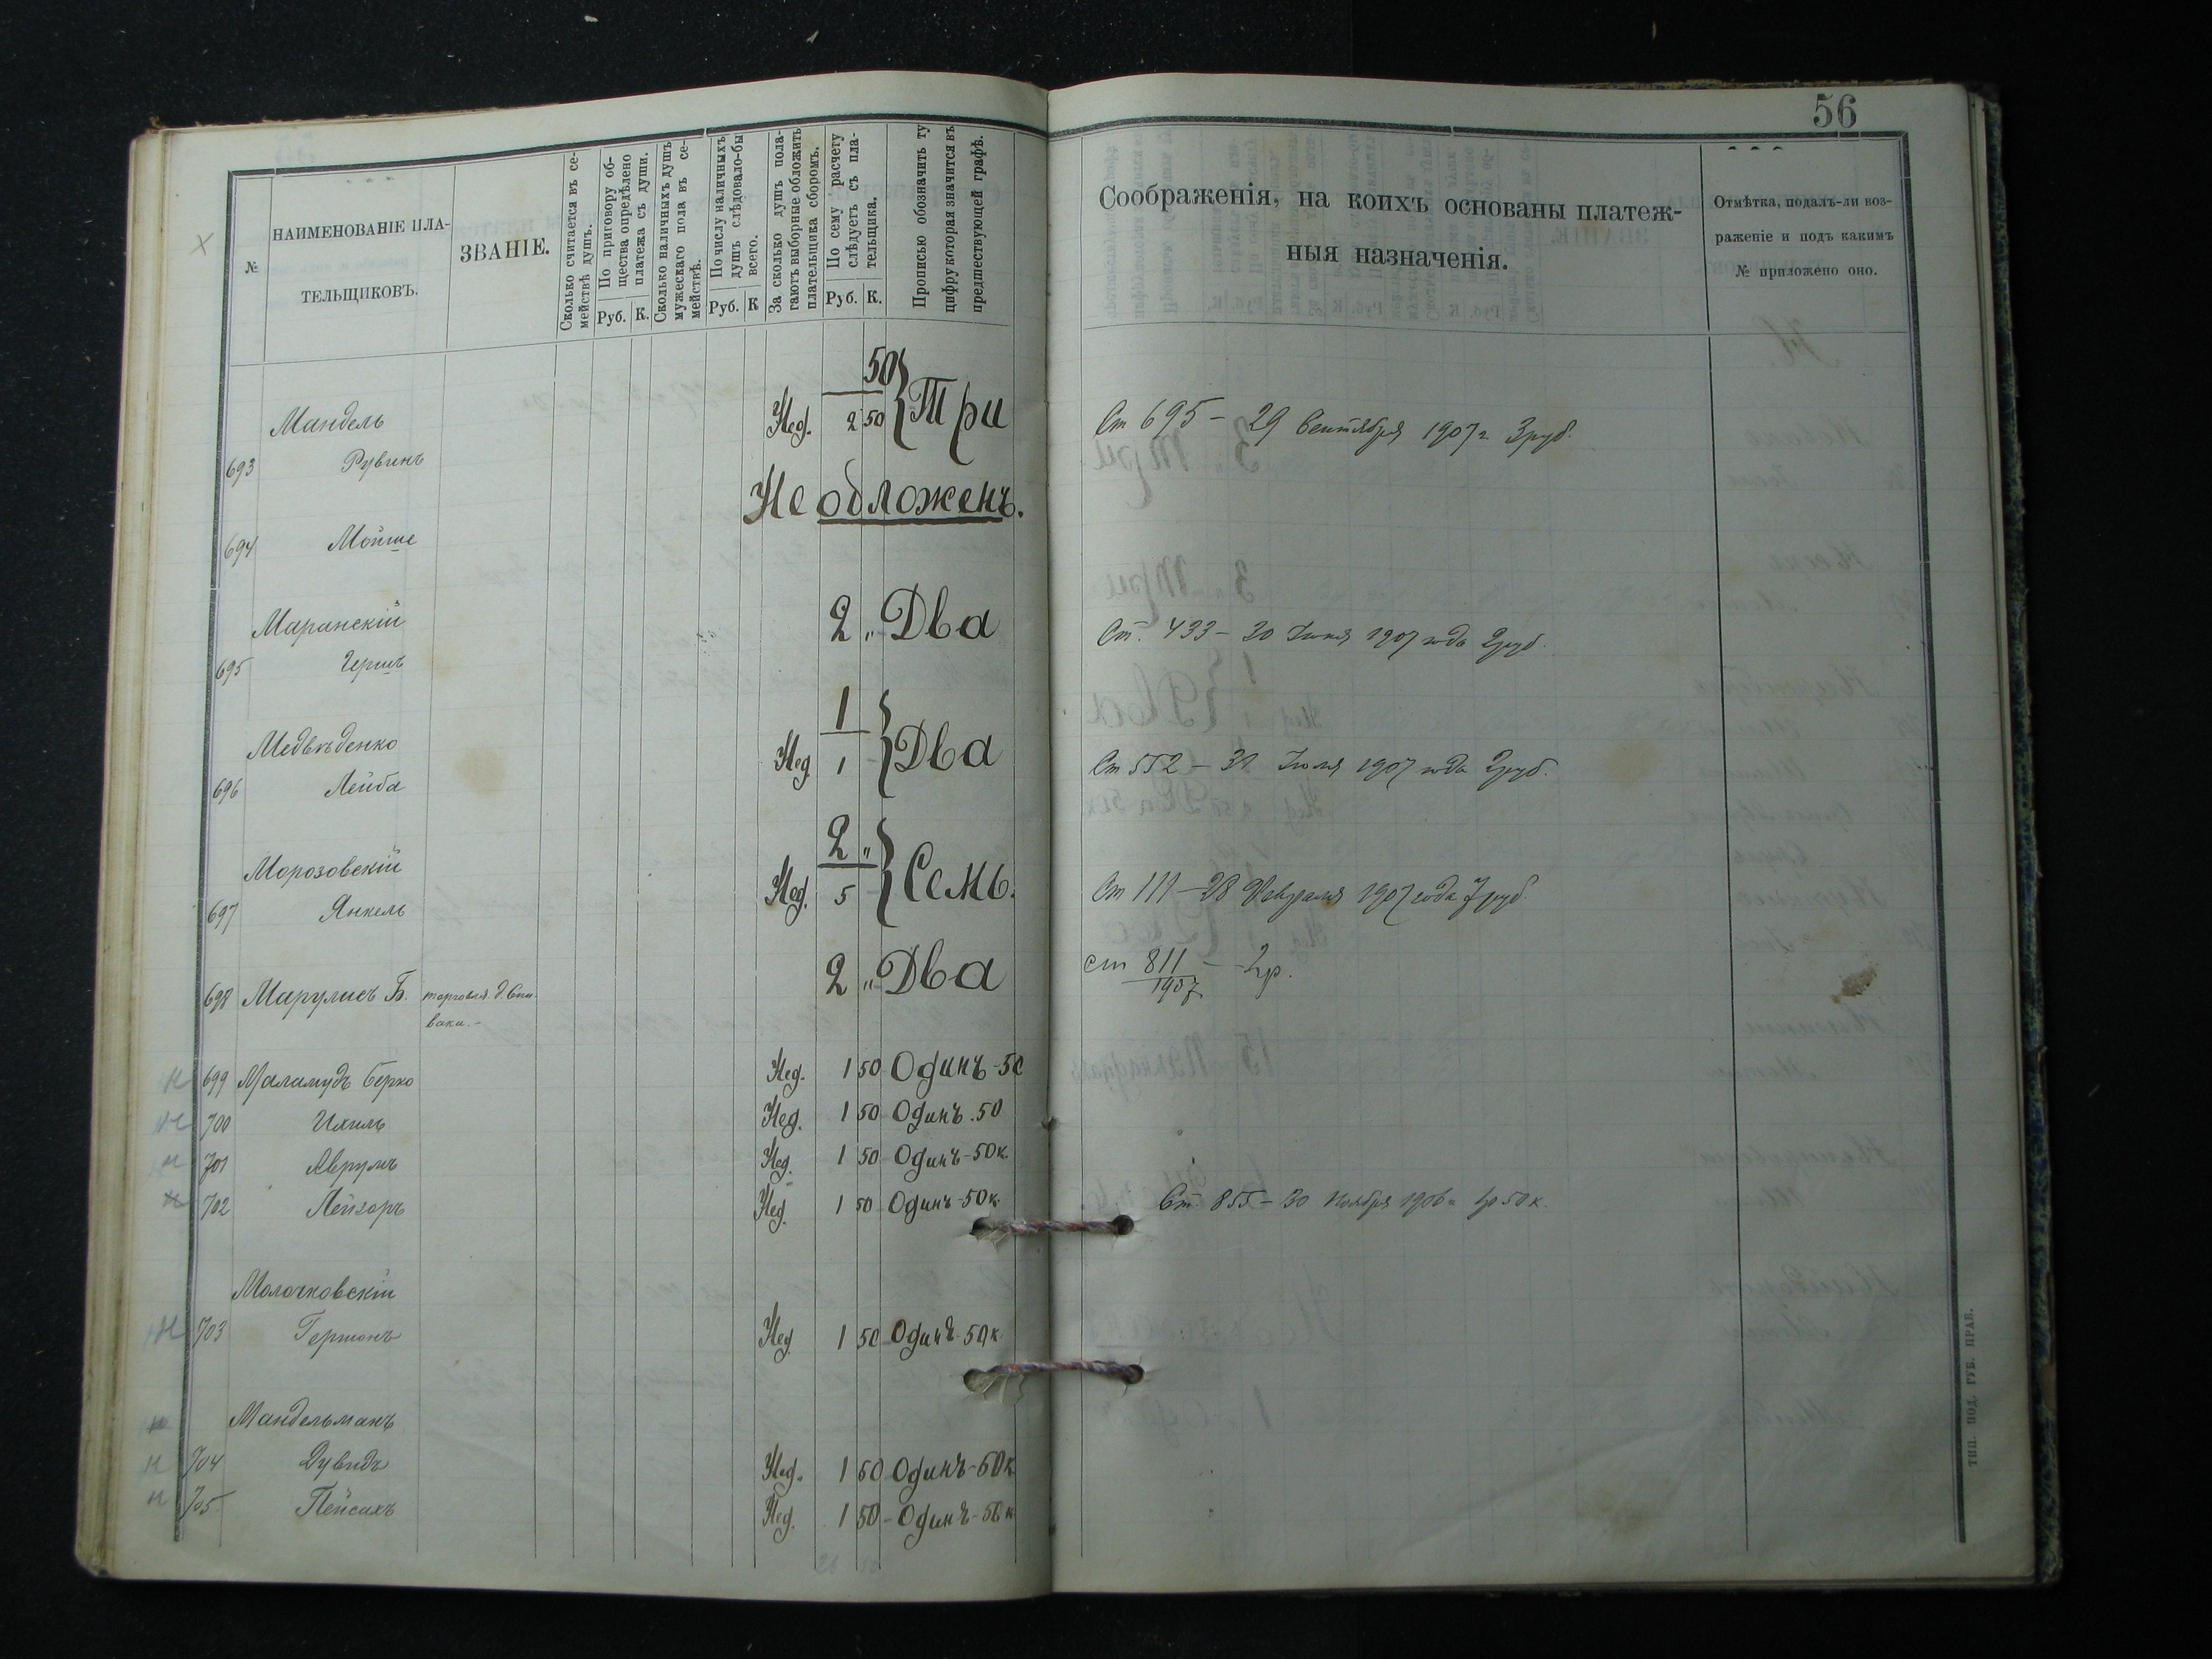 56
№
НАИМЕНОВАНІЕ ПЛА-
ТЕЛЬЩИКОВЪ.
ЗВАНІЕ.
Сколько считается въ се-
мействѣ душъ.
По приговору об-
щества опредѣлено
платежа съ души.
Руб. К.
Сколько наличныхъ душъ
мужескаго пола въ се-
мействѣ.
По числу наличныхъ
душъ слѣдовало-бы
всего.
Руб. К
За сколько душъ пола-
гаютъ выборные обложить
плательщика сборомъ.
По сему расчету
слѣдуетъ съ пла-
тельщика.
Руб. К.
Прописью обозначить ту
цифру которая значится въ
предшествующей графѣ.
Соображенія, на коихъ основаны платеж-
ныя назначенія.
Отмѣтка, подалъ-ли воз-
раженіе и подъ какимъ
№ приложено оно.
50
Мандель Нед. 2 50 Три Ст 695 – 29 Сентября 1907 г. 3 руб.
693 Рувинъ
Не обложенъ.
694 Мойше
Маранскій 2 „ Два Ст. 433 – 30 Іюня 1907 года 2 руб.
695 Гершъ
1
Медвѣденко Нед 1 Два Ст 552 – 31 Іюля 1907 года 2 руб.
696 Лейба
2 „
Морозовскій Нед. 5 Семь. Ст 111 – 28 Февраля 1907 года 7 руб.
697 Янкель
698 Марулисъ Б. торговля д. Спи-
ваки. –
2 „ Два ст 811 – 2р.
1907
699 Маламудъ Берко Нед. 1 50 Одинъ - 50
700 Ихиль Нед. 1 50 Одинъ . 50
701 Аврумъ Нед. 1 50 Одинъ - 50 к.
702 Лейзоръ Нед. 1 50 Одинъ - 50 к. Ст. 855 – 30 Ноября 1906 г. 1р 50 к.
Молочковскій
703 Гершонъ Нед 1 50 Одинъ - 50 к.
Мандельманъ
704 Дувидъ Нед. 1 50 Одинъ - 50 к
705 Пейсахъ Нед. 1 50 – Одинъ - 50 к
ТИП. ПОД. ГУБ. ПРАВ.